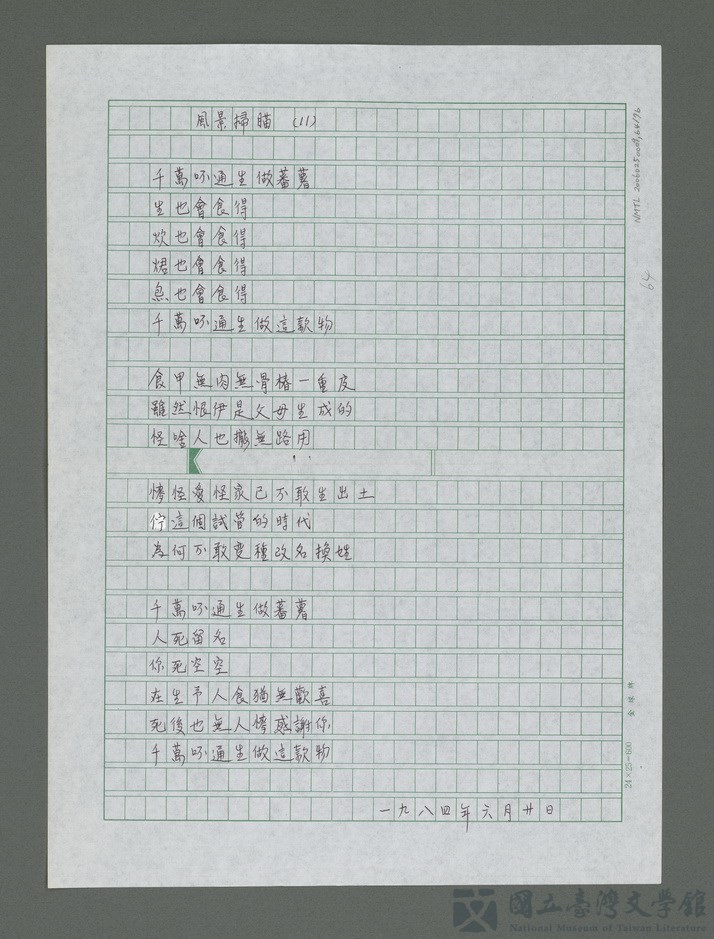 風景掃瞄 (11)
千萬呣通生做蕃薯
生也會食得
炊也會食得
焜也會食得
煎也會食得
千萬呣通生做這款物
食甲無肉無骨樁一重皮
雖然恨伊是父母生成的
怪啥人也攏無路用
愖怪愛怪家己不敢生出土
佇這個試管的時代
為何不敢變種改名換姓
千萬呣通生做蕃薯
人死留名
你死空空
在生予人食猶無歡喜
死後也無人愖感謝你
千萬呣通生做這款物
一九八四年六月廿日
NMTL 20060250009,649/96
64
24×25=600
國立臺灣文學館
National Museum of Taiwan Literature